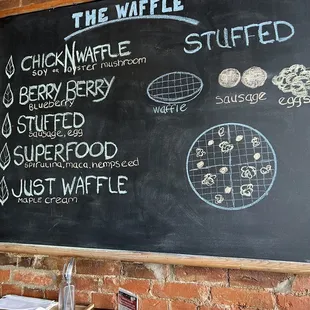 THE WAFFLE
CHICK N WAFFLE
SOY or oyster mushroom
BERRY BERRY
Blueberry
STUFFED
Sausage, egg
SUPERFOOD
Spirulina, maca, hempseed
JUST WAFFLE
Maple cream
STUFFED
waffle
sausage
eggs